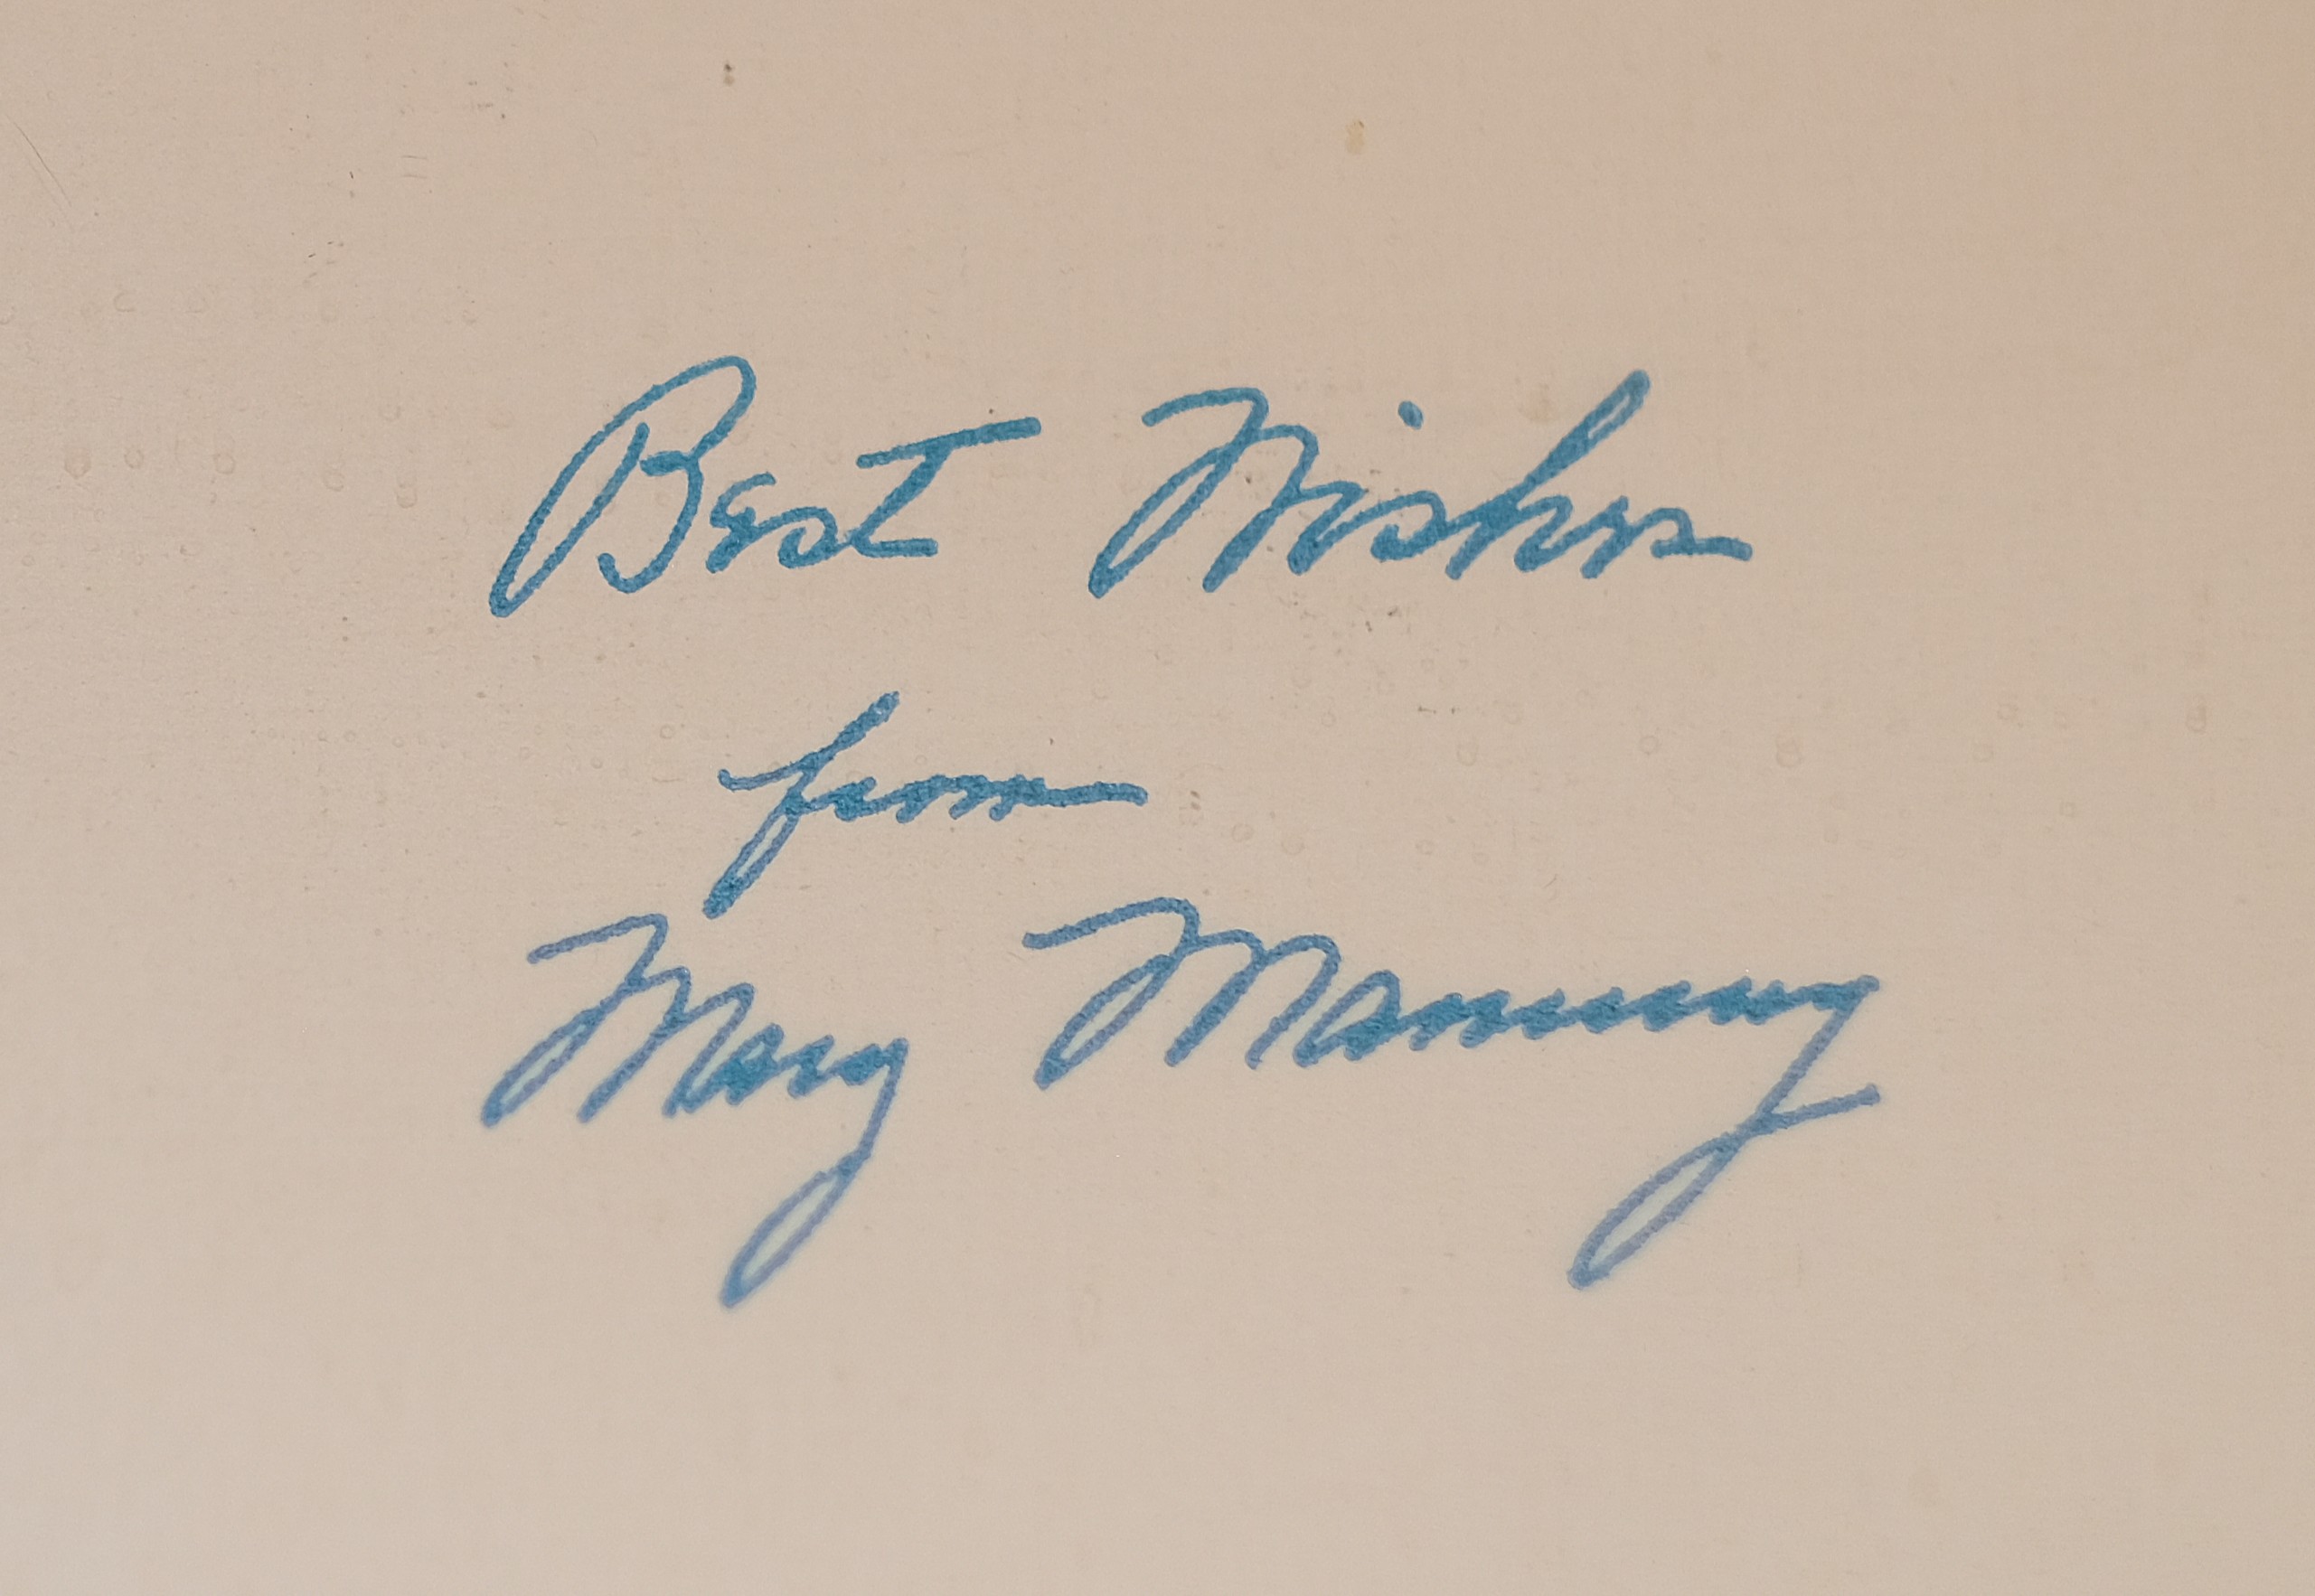 Best Wishes
from
Mary Manning